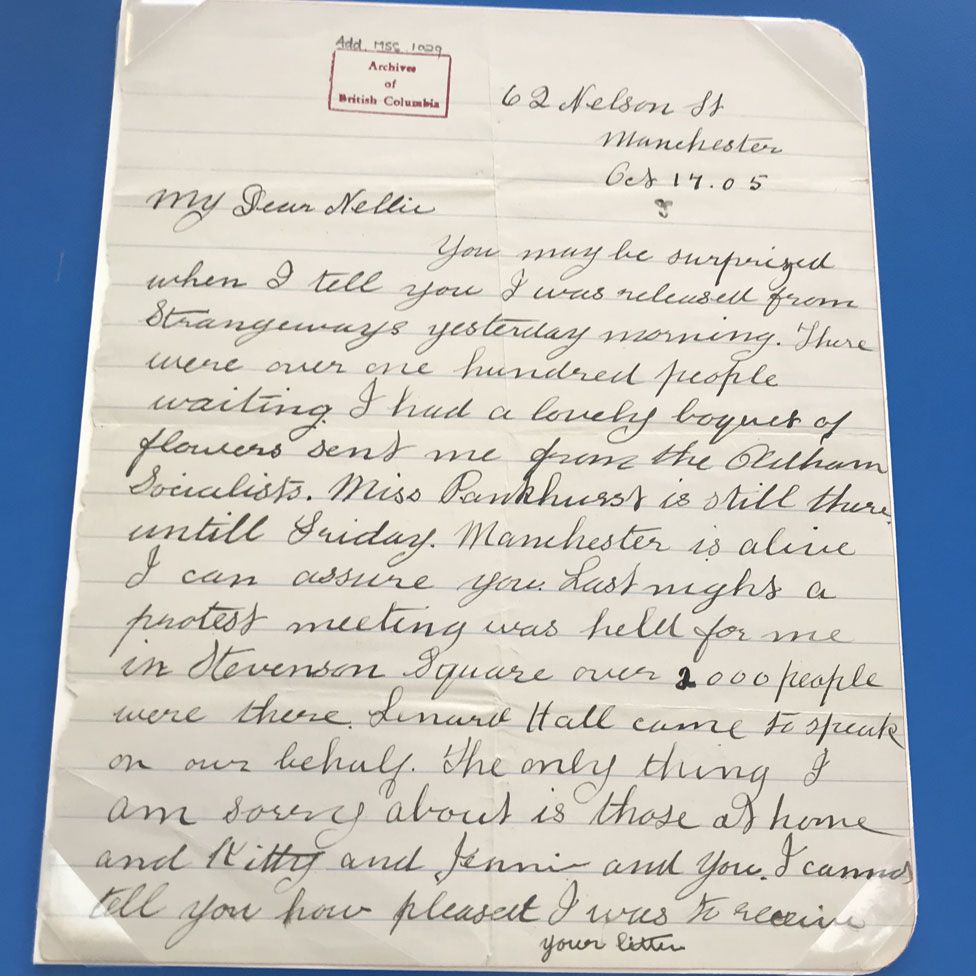 Add. MSS. 1029
Archives
of
British Columbia
62 Nelson St
Manchester
Oct 17.05
My Dear Nellie
You may be surprized
when I tell you I was released from
Strangeways yesterday morning. There
were over one hundred people
waiting. I had a lovely boquet of
flowers sent me from the Oldham
Socialists. Miss Pankhurst is still there
untill Friday. Manchester is alive
I can assure you. Last night a
protest meeting was held for me
in Stevenson Square over 2000 people
were there. Linard Hall came to speak
on our behalf. The only thing I
am sorry about is those at home
and Kitty and Jennie and You. I cannot
tell you how pleased I was to receive
your letter